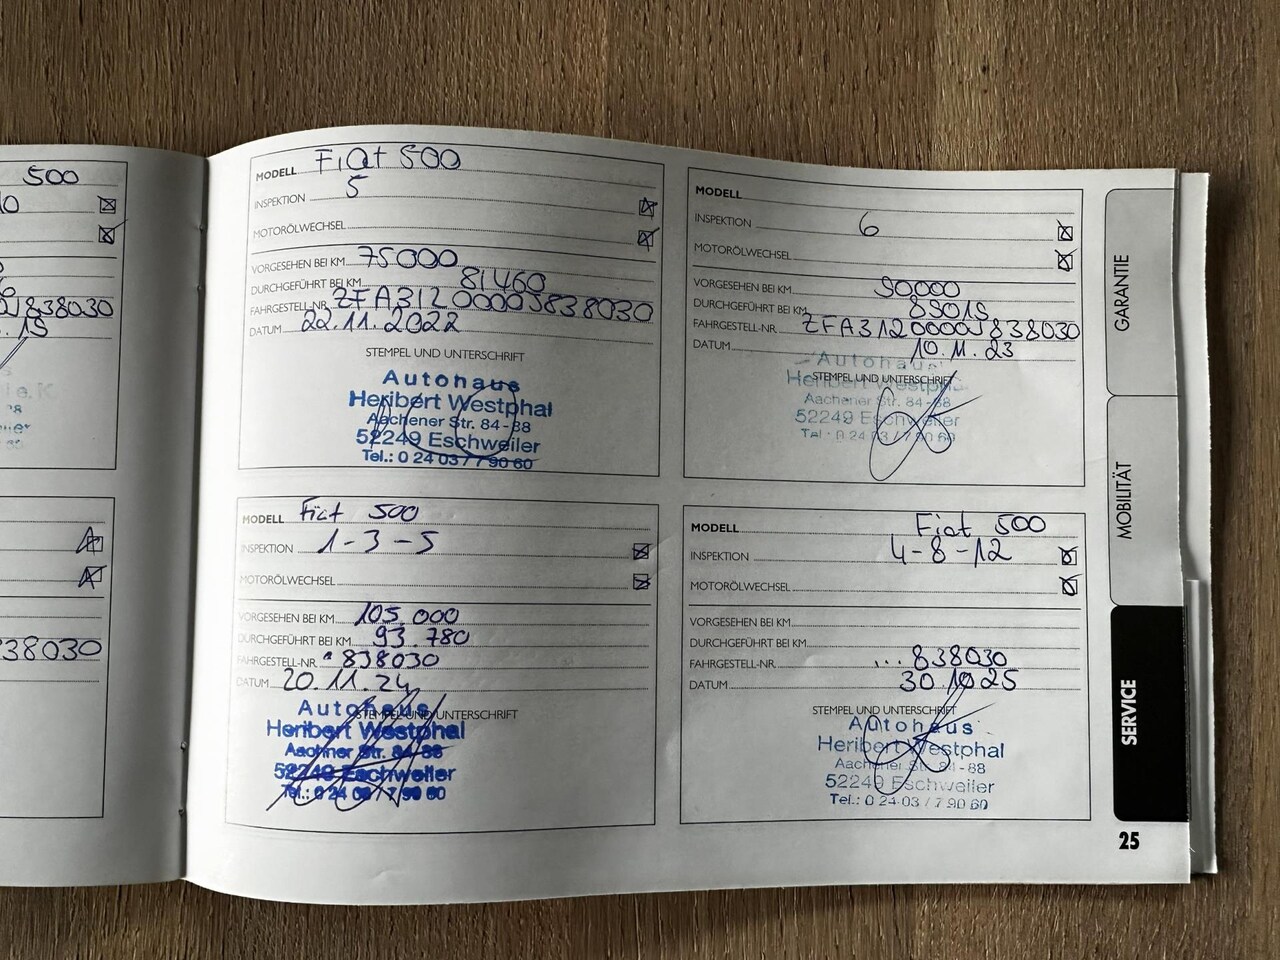 500
838030
838030
MODELL Fiat 500
INSPEKTION 5
MOTORÖLWECHSEL
VORGESEHEN BEI KM 75000
DURCHGEFÜHRT BEI KM 81460
FAHRGESTELL-NR. ZFA3120000J838030
DATUM 22.11.2022
STEMPEL UND UNTERSCHRIFT
Autohaus
Heribert Westphal
Aachener Str. 84-88
52249 Eschweiler
Tel.: 0 24 03 / 7 90 60
MODELL
INSPEKTION 6
MOTORÖLWECHSEL
VORGESEHEN BEI KM 90000
DURCHGEFÜHRT BEI KM 89019
FAHRGESTELL-NR. ZFA3120000J838030
DATUM 10.11.23
STEMPEL UND UNTERSCHRIFT
Autohaus
Heribert Westphal
Aachener Str. 84-88
52249 Eschweiler
Tel.: 0 24 03 / 7 90 60
MODELL Fiat 500
INSPEKTION 1-3-5
MOTORÖLWECHSEL
VORGESEHEN BEI KM 105.000
DURCHGEFÜHRT BEI KM 93.780
FAHRGESTELL-NR. 838030
DATUM 20.11.24
STEMPEL UND UNTERSCHRIFT
Autohaus
Heribert Westphal
Aachner Str. 84-88
52249 Eschweiler
Tel.: 0 24 03 / 7 90 60
MODELL Fiat 500
INSPEKTION 4-8-12
MOTORÖLWECHSEL
VORGESEHEN BEI KM
DURCHGEFÜHRT BEI KM
FAHRGESTELL-NR. ...838030
DATUM 30.10.25
STEMPEL UND UNTERSCHRIFT
Autohaus
Heribert Westphal
Aachener Str. 84-88
52249 Eschweiler
Tel.: 0 24 03 / 7 90 60
GARANTIE
MOBILITÄT
SERVICE
25